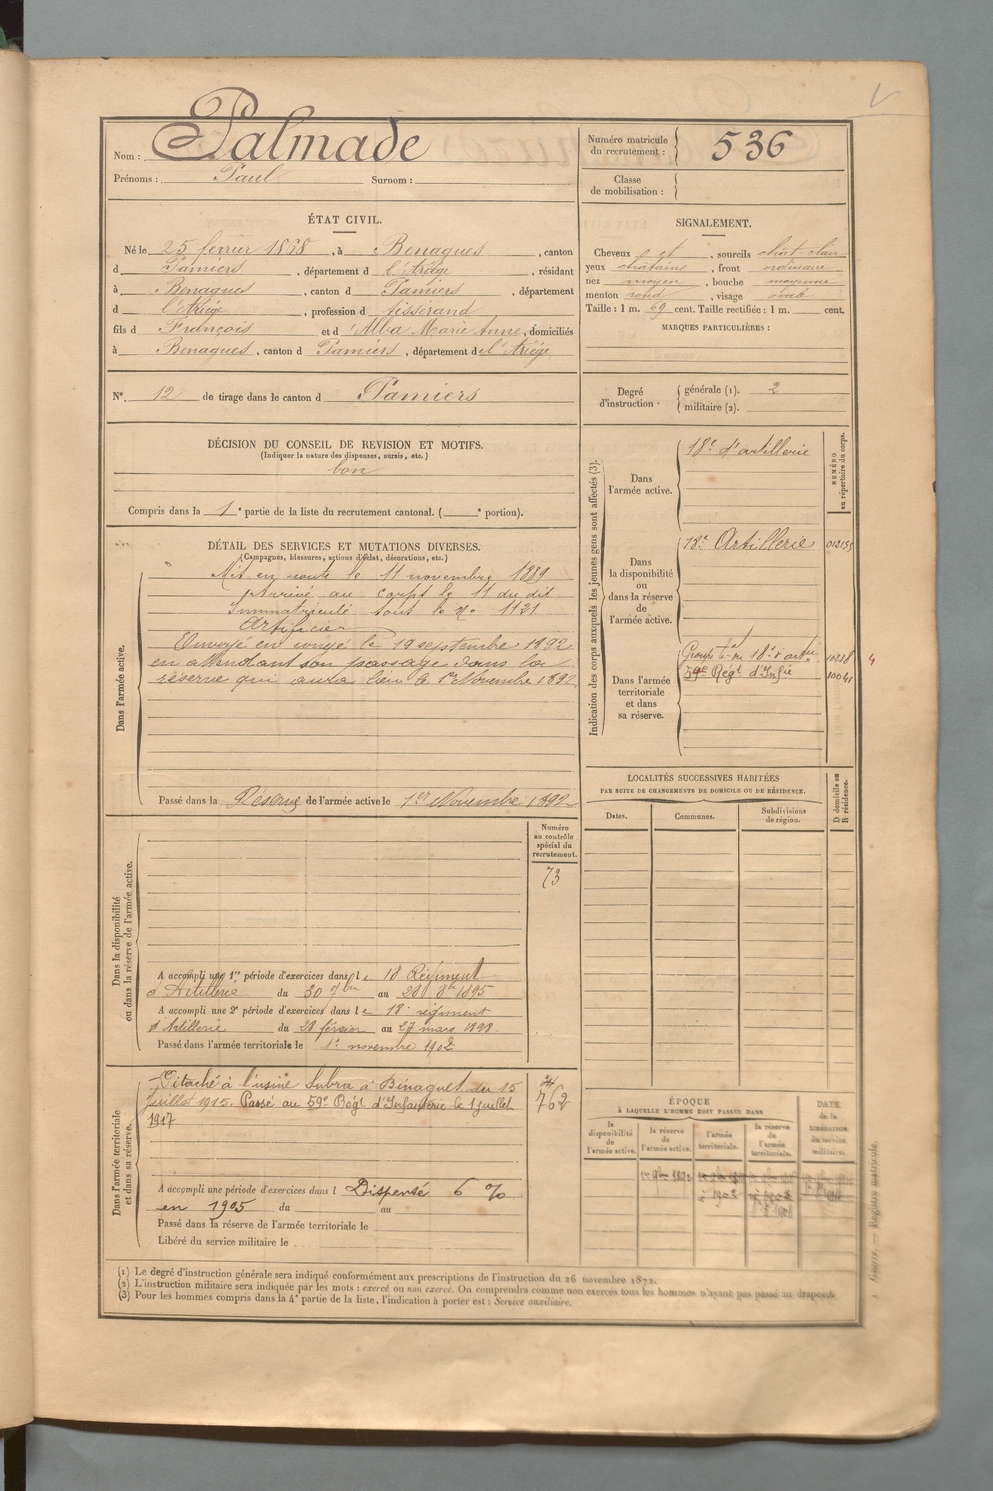 Nom : Palmade
Prénoms : Paul Surnom :
Numéro matricule du recrutement : 536
Classe de mobilisation :
ÉTAT CIVIL.
Né le 25 février 1868, à Benagues, canton
d Pamiers, département d l'Ariège, résidant
à Benagues, canton d Pamiers, département
d l'Ariège, profession d tisserand
fils d François et d Alba Marie Anne, domiciliés
à Benagues, canton d Pamiers, département de l'Ariège
N° 12 de tirage dans le canton d Pamiers
SIGNALEMENT.
Cheveux et, sourcils chât-clair
yeux chatains, front ordinaire
nez moyen, bouche moyenne
menton rond, visage ovale
Taille : 1 m. 69 cent. Taille rectifiée : 1 m. cent.
MARQUES PARTICULIÈRES :
Degré d'instruction : générale (1). 2
militaire (2).
DÉCISION DU CONSEIL DE REVISION ET MOTIFS.
(Indiquer la nature des dispenses, sursis, etc.)
bon
Compris dans la 1e partie de la liste du recrutement cantonal. ( e portion).
DÉTAIL DES SERVICES ET MUTATIONS DIVERSES.
(Campagnes, blessures, actions d'éclat, décorations, etc.)
Dans l'armée active.
Mis en route le 11 novembre 1889
Arrivé au corps le 11 du dit
Immatriculé sous le N° 1121
Artificier
Envoyé en congé le 19 septembre 1892
en attendant son passage dans la
réserve qui aura lieu le 1er Novembre 1892
Passé dans la Réserve de l'armée active le 1er Novembre 1892
Indication des corps auxquels les jeunes gens sont affectés (3).
NUMÉRO au répertoire du corps.
Dans l'armée active.
18e d'artillerie
Dans la disponibilité ou dans la réserve de l'armée active.
18e Artillerie
Dans l'armée territoriale et dans sa réserve.
Groupe 18e
10238
59e Régt d'Infie
10041
4
LOCALITÉS SUCCESSIVES HABITÉES
PAR SUITE DE CHANGEMENTS DE DOMICILE OU DE RÉSIDENCE.
Dates. Communes. Subdivisions de région. D domicile ou R résidence.
Dans la disponibilité ou dans la réserve de l'armée active.
Numéro au contrôle spécial du recrutement.
73
A accompli une 1re période d'exercices dans le 18 Régiment
d'Artillerie du 30 7bre au 1895
A accompli une 2e période d'exercices dans le 18e régiment
d'Artillerie du 28 février au 27 mars 1898
Passé dans l'armée territoriale le 1er novembre 1902
Dans l'armée territoriale et dans sa réserve.
Détaché à l'usine Subra à Bénagues du 15
juillet 1915. Passé au 59e Régt d'Infanterie le 1 juillet
1917
762
A accompli une période d'exercices dans l Dispensé 6 %
en 1905 du au
Passé dans la réserve de l'armée territoriale le
Libéré du service militaire le
ÉPOQUE
À LAQUELLE L'HOMME DOIT PASSER DANS
la disponibilité de l'armée active.
la réserve de l'armée active.
l'armée territoriale.
la réserve de l'armée territoriale.
DATE de la LIBÉRATION du service militaire.
(1) Le degré d'instruction générale sera indiqué conformément aux prescriptions de l'instruction du 26 novembre 1872.
(2) L'instruction militaire sera indiquée par les mots : exercé ou non exercé. On comprendra comme non exercés tous les hommes n'ayant pas passé au drapeau.
(3) Pour les hommes compris dans la 4e partie de la liste, l'indication à porter est : Service auxiliaire.
Registre matricule.